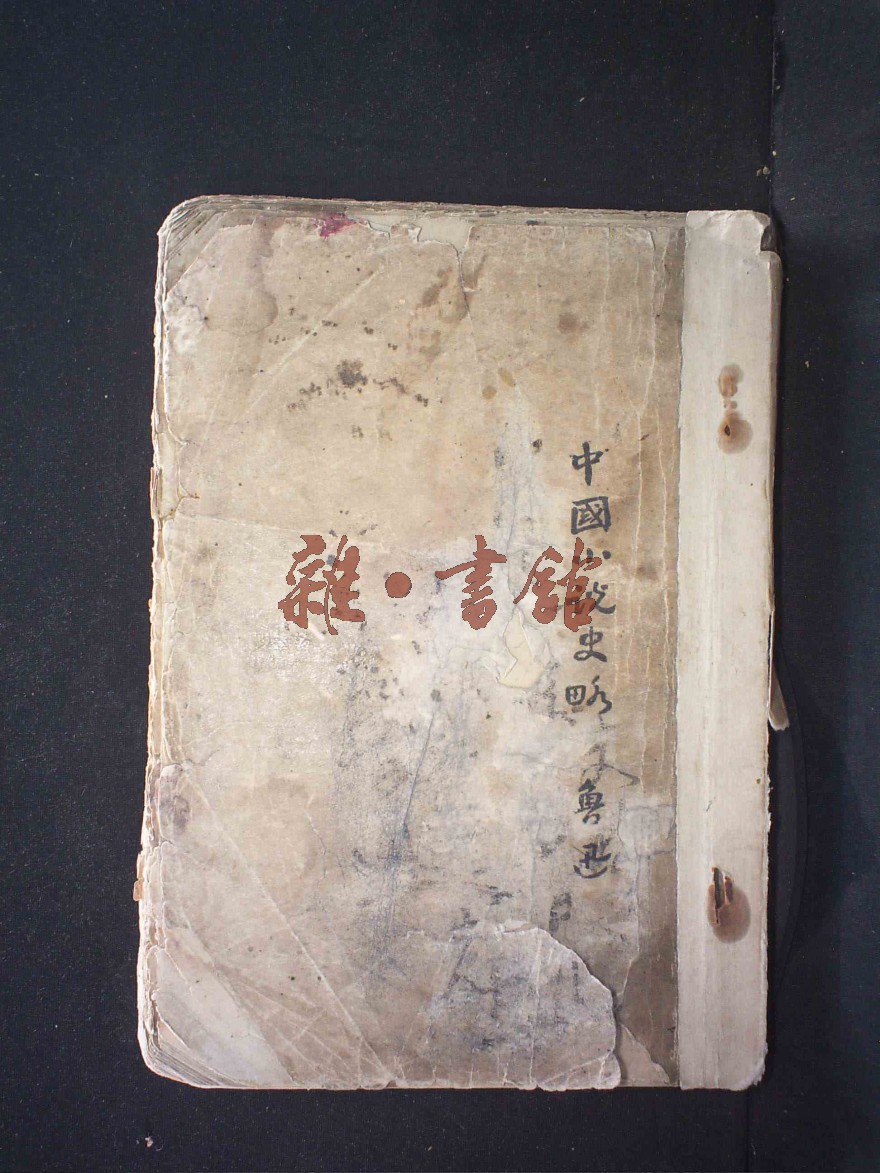 中國小說史略 魯迅
雜·書館